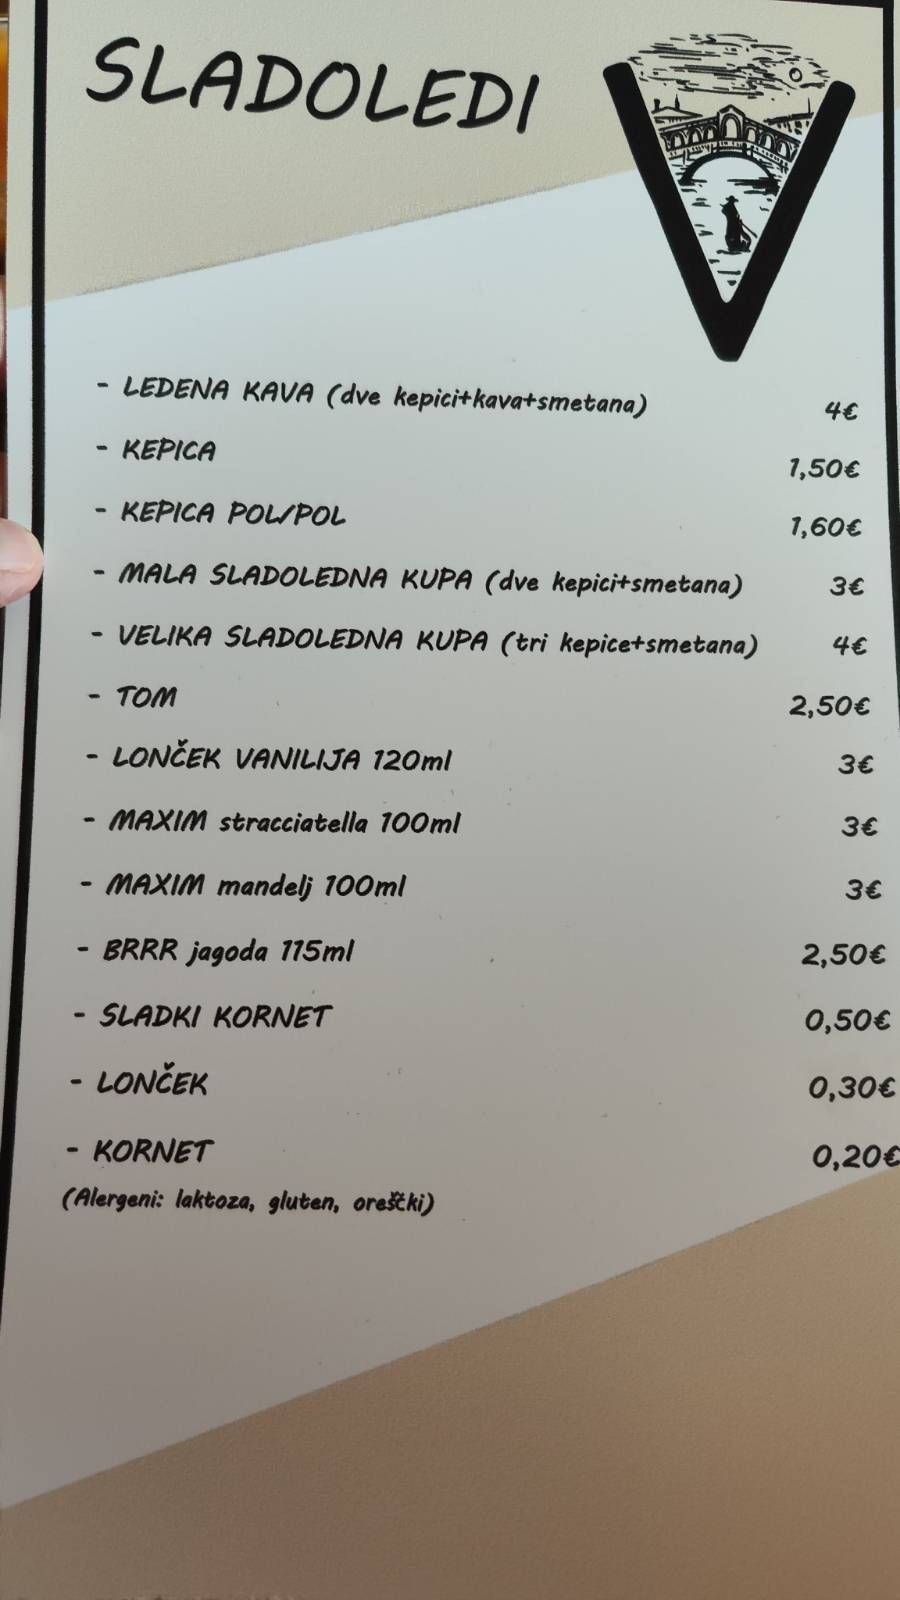 SLADOLEDI
- LEDENA KAVA (dve kepici+kava+smetana) 4€
- KEPICA 1,50€
- KEPICA POL/POL 1,60€
- MALA SLADOLEDNA KUPA (dve kepici+smetana) 3€
- VELIKA SLADOLEDNA KUPA (tri kepice+smetana) 4€
- TOM 2,50€
- LONČEK VANILIJA 120ml 3€
- MAXIM stracciatella 100ml 3€
- MAXIM mandelj 100ml 3€
- BRRR jagoda 115ml 2,50€
- SLADKI KORNET 0,50€
- LONČEK 0,30€
- KORNET 0,20€
(Alergeni: laktoza, gluten, oreščki)